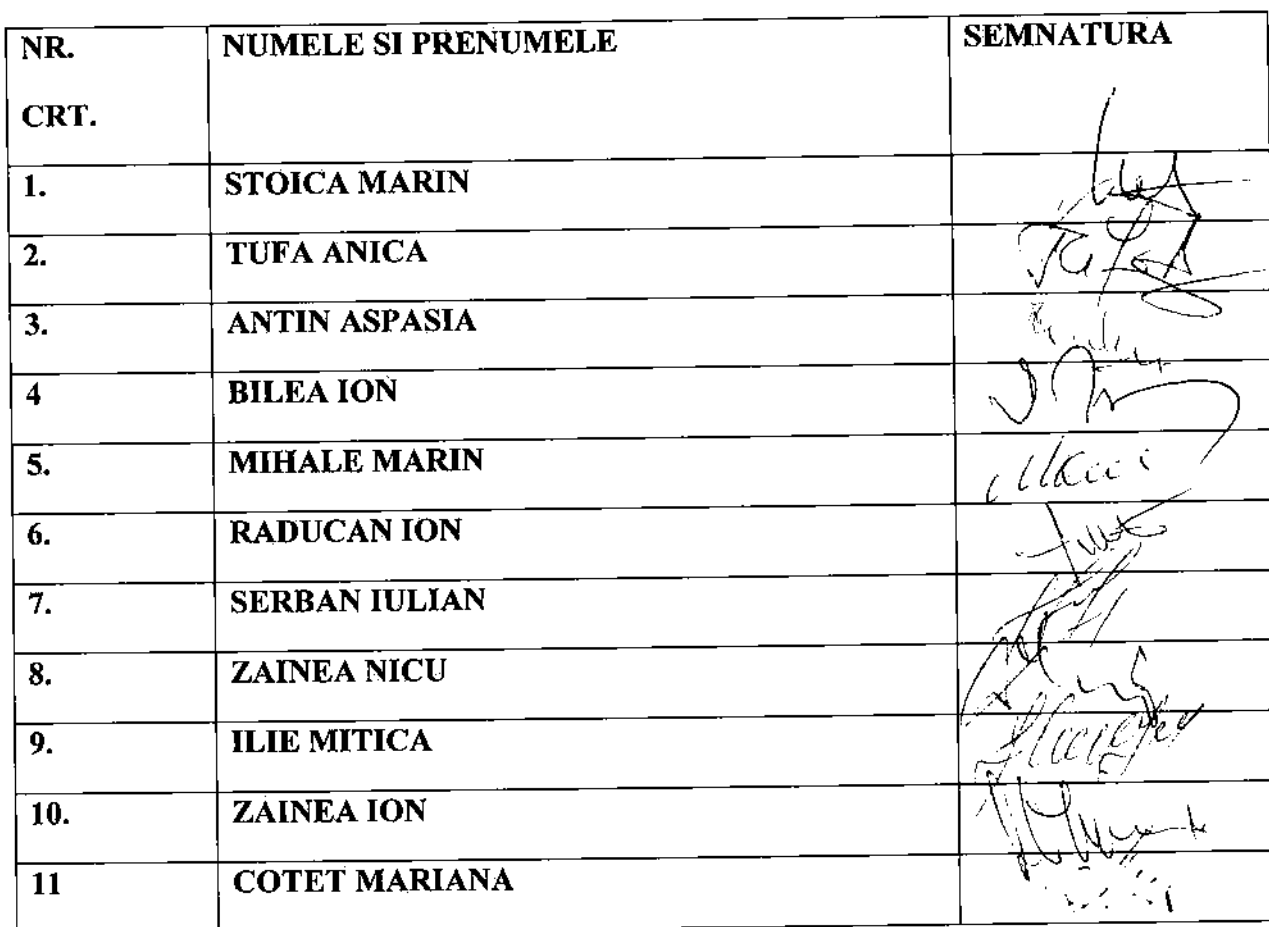 NR. CRT. NUMELE SI PRENUMELE SEMNATURA
1. STOICA MARIN
2. TUFA ANICA
3. ANTIN ASPASIA
4 BILEA ION
5. MIHALE MARIN
6. RADUCAN ION
7. SERBAN IULIAN
8. ZAINEA NICU
9. ILIE MITICA
10. ZAINEA ION
11 COTET MARIANA